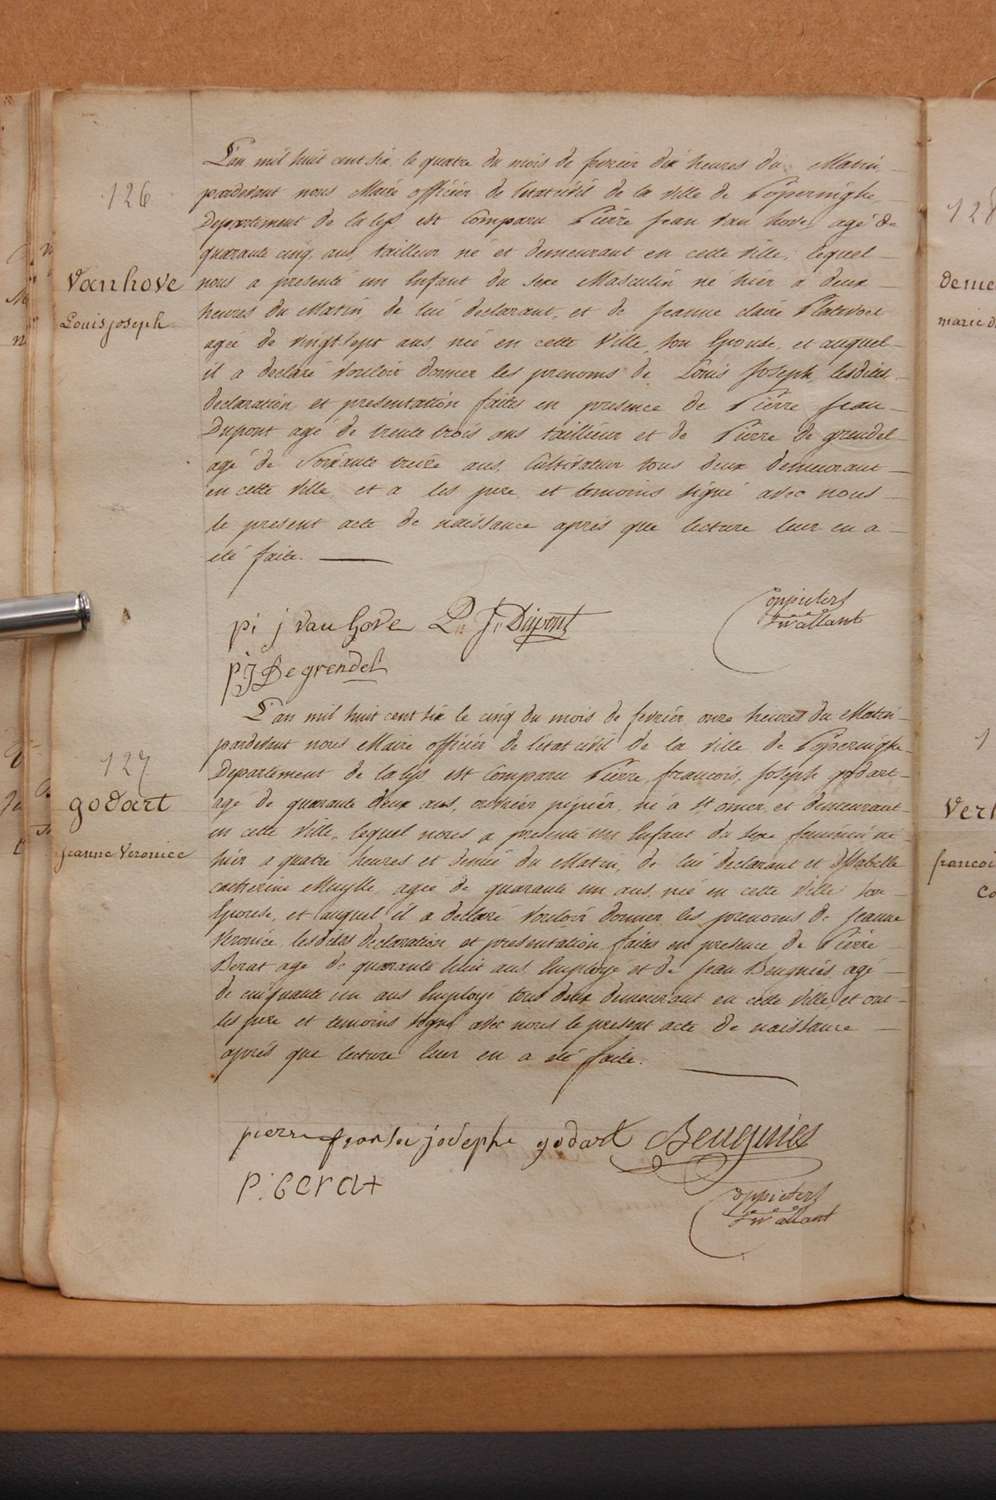 126
Vanhove
Louis joseph
L'an mil huit cent six le quatre du mois de fevrier dix heures du Matin
pardevant nous Maire officier de l'etat civil de la ville de Poperinghe
Departement de la lys est Comparu Pierre Jean Van hove agé de
quarante cinq ans, tailleur né et demeurant en cette ville, lequel
nous a presenté un Enfant du sexe Masculin né hier à deux
heures du Matin de lui declarant, et de Jeanne claire
agée de vingt sept ans, née en cette Ville, son Epouse, et auquel
il a declaré vouloir donner les prenoms de Louis Joseph, lesdites
declaration et presentation faites en presence de Pierre Jean
Dupont agé de trente trois ans tailleur et de Pierre De grendel
agé de Soixante treize ans, Cultivateur tous deux demeurant
en cette Ville, et a les pere et temoins signé avec nous
le present acte de naissance après que lecture leur en a
été faite.
pi j van hove P. J. Dupont
oppieters
tvallant
p J De grendel
127
godart
jeanne Veronice
L'an mil huit cent six le cinq du mois de fevrier onze heures du Matin
pardevant nous Maire officier de l'etat civil de la ville de Poperinghe
Departement de la lys est Comparu Pierre, francois, Joseph godart
agé de quarante deux ans, ouvrier pipier, né à St omer, et demeurant
en cette Ville, lequel nous a presenté un Enfant du sexe feminin né
hier à quatre heures et demie du Matin, de lui declarant et d'Isabelle
catherine Muylle, agée de quarante un ans, née en cette Ville son
Epouse, et auquel il a declaré vouloir donner les prenoms de Jeanne
Veronice, lesdites declaration et presentation faites en presence de Pierre
Berat agé de quarante huit ans Employé et de Jean Beugnies agé
de cinquante un ans Employé tous deux demeurant en cette Ville, et ont
les pere et temoins signé avec nous le present acte de naissance
après que lecture leur en a été faite.
pierre josephe godart Beugnies
P. berat
oppieters
tvallant
128
marie
Vert
francoi